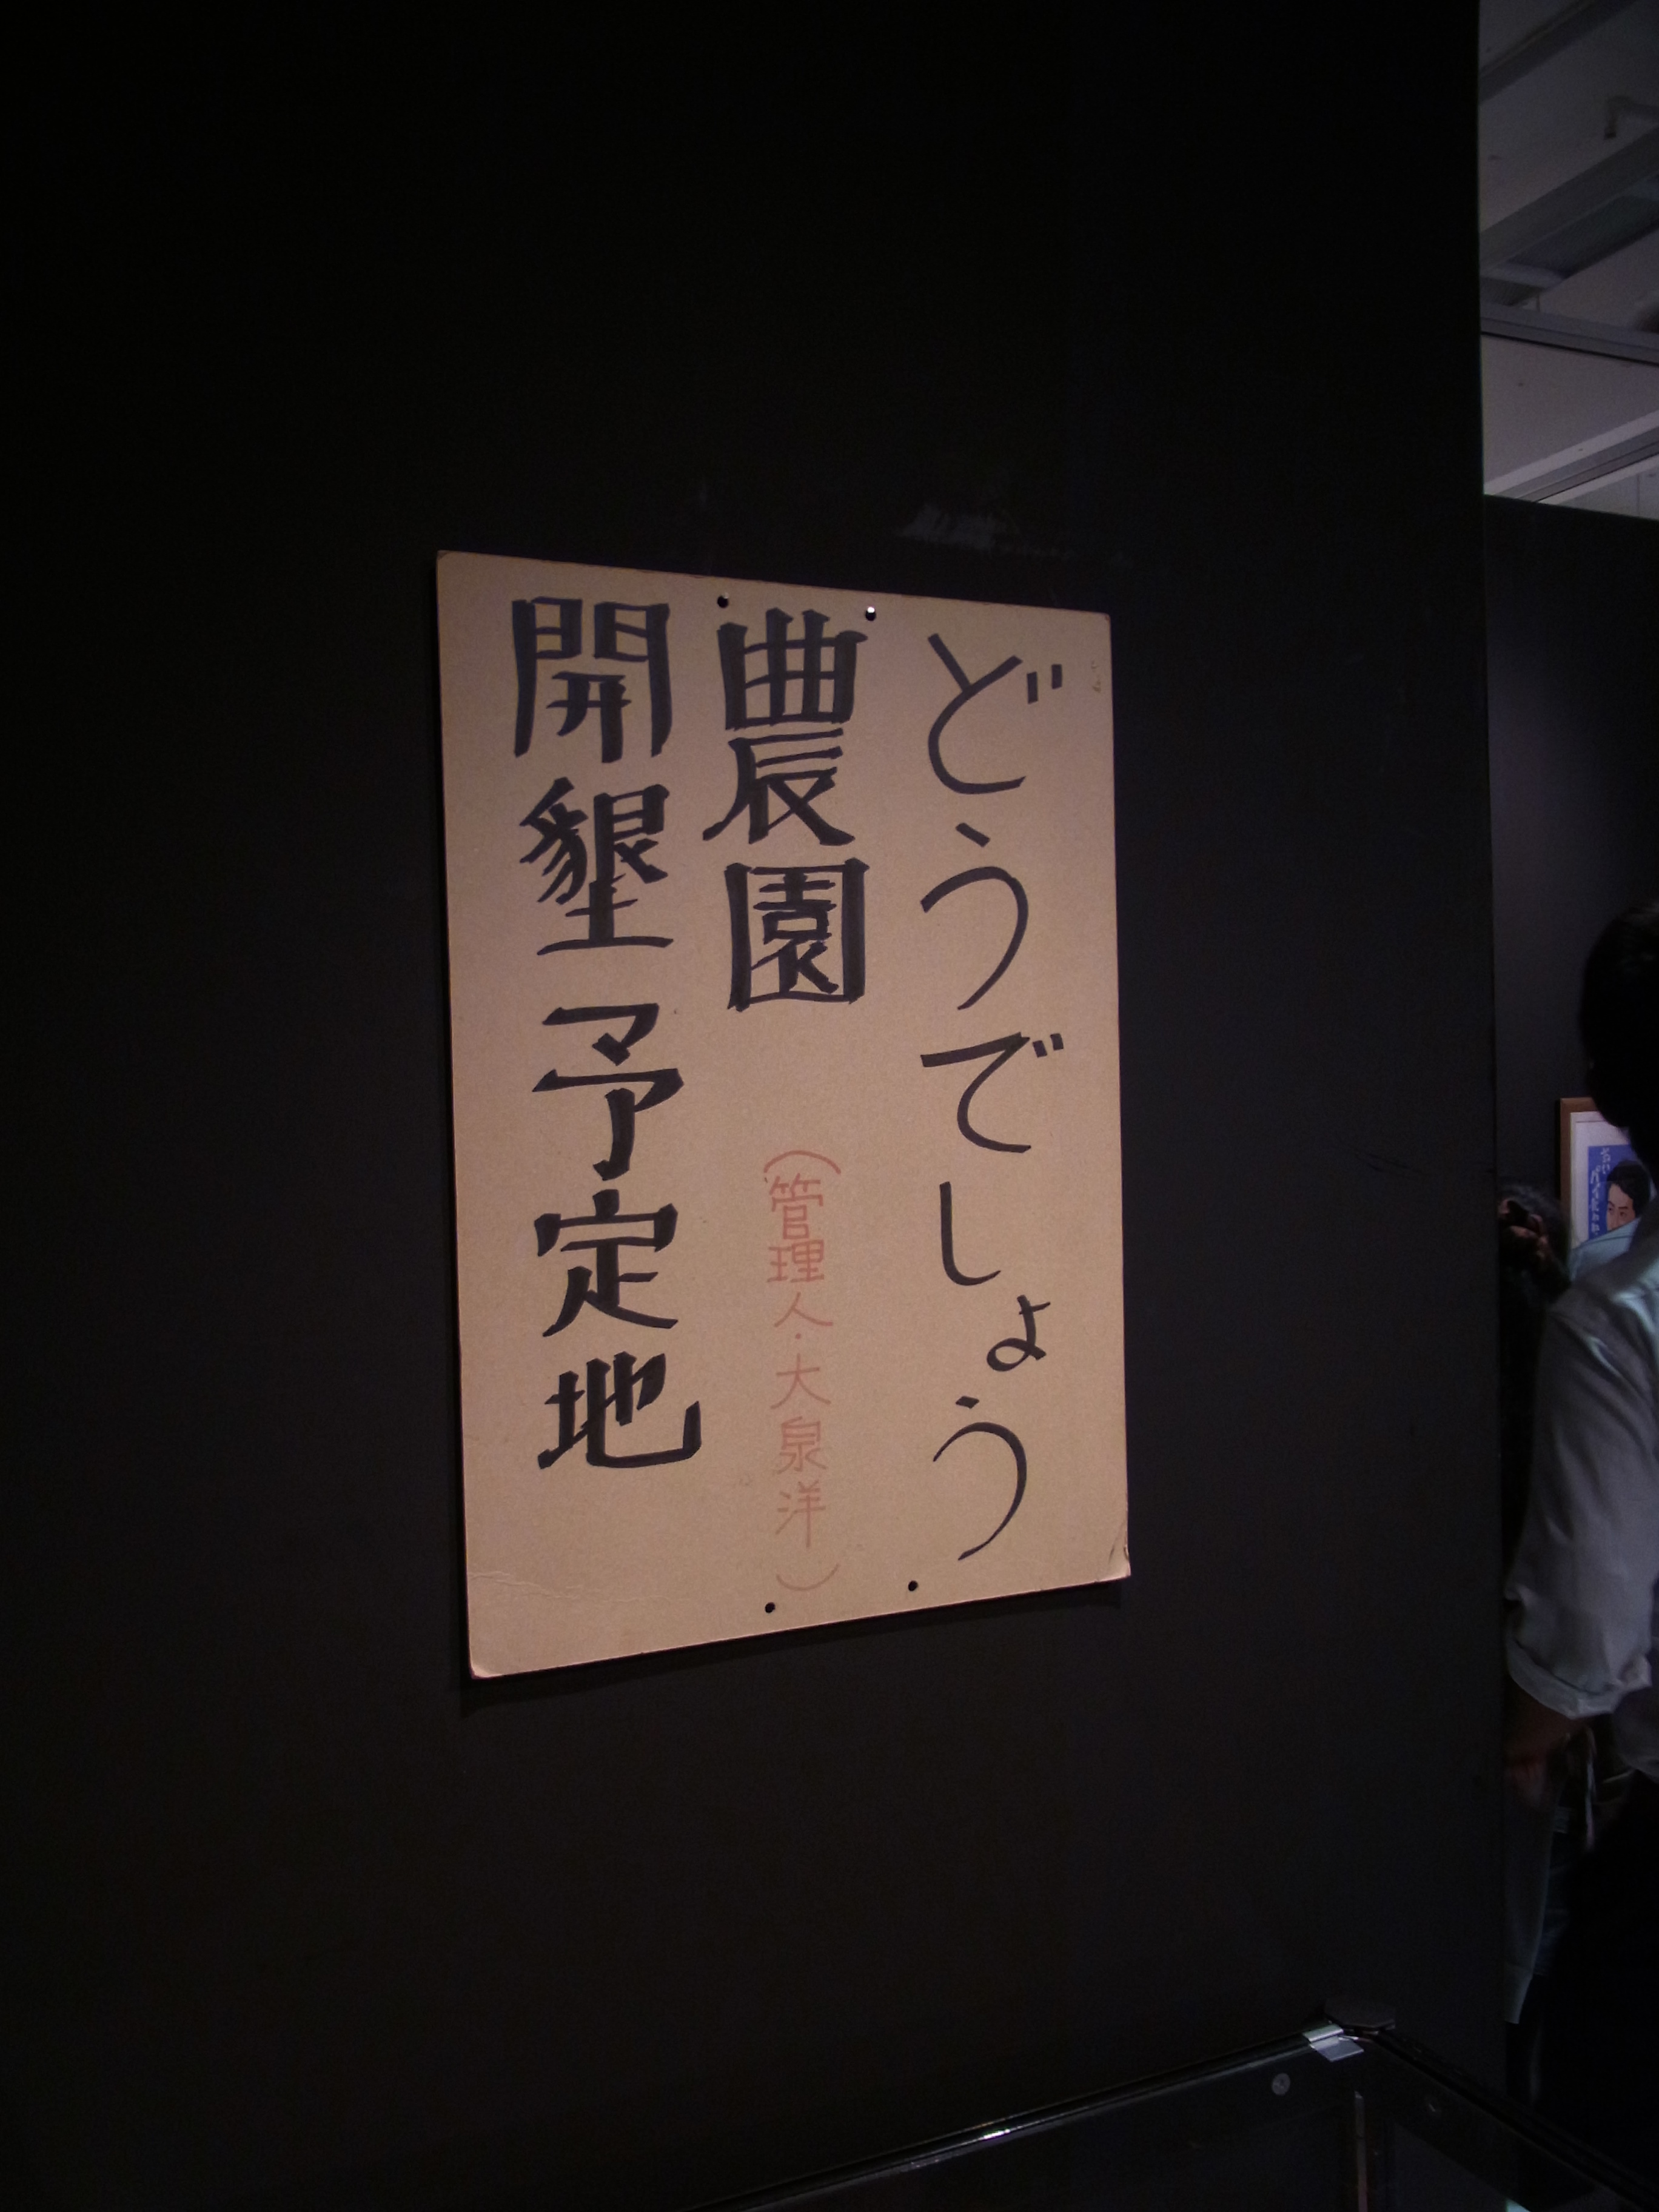 どうでしょう
農園
(管理人・大泉洋)
開墾予定地